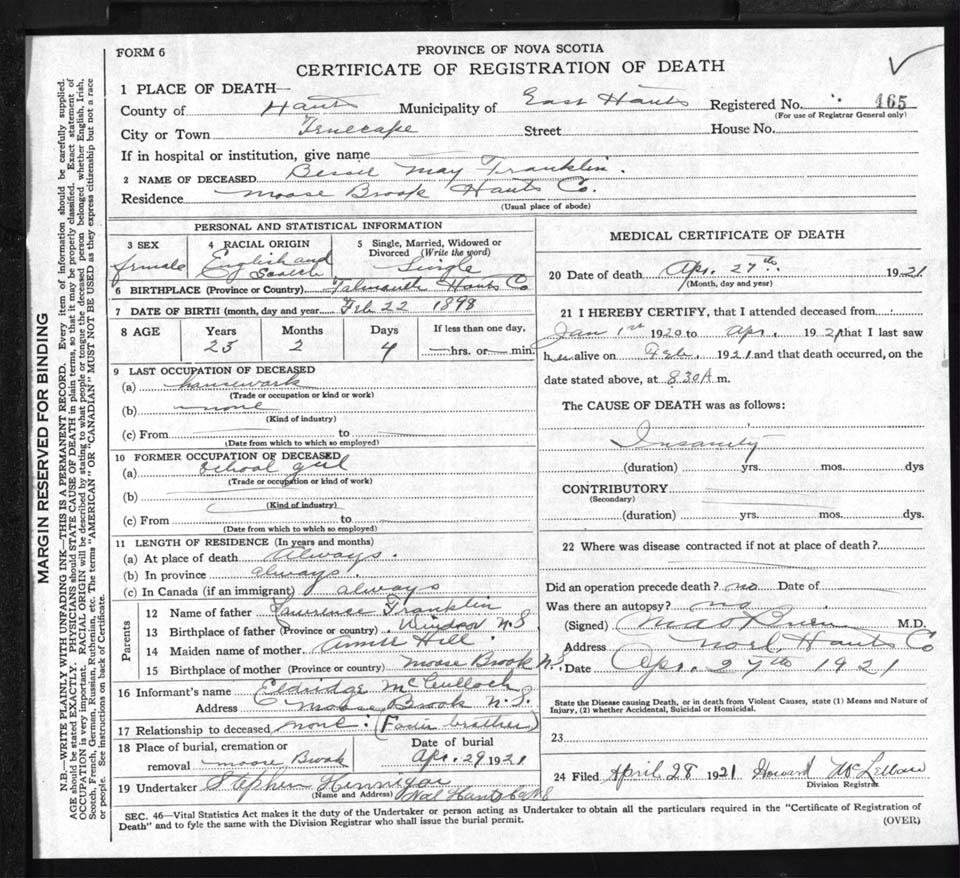 FORM 6
PROVINCE OF NOVA SCOTIA
CERTIFICATE OF REGISTRATION OF DEATH
1 PLACE OF DEATH—
County of Hants Municipality of East Hants Registered No. 165
(For use of Registrar General only)
City or Town Tenecape Street House No.
If in hospital or institution, give name
2 NAME OF DECEASED Bessie May Franklin.
Residence Moose Brook Hants Co.
(Usual place of abode)
PERSONAL AND STATISTICAL INFORMATION
3 SEX 4 RACIAL ORIGIN 5 Single, Married, Widowed or
Divorced (Write the word)
female English and Scotch Single
6 BIRTHPLACE (Province or Country) Falmouth Hants Co
7 DATE OF BIRTH (month, day and year) Feb 22 1898
8 AGE Years Months Days If less than one day,
23 2 4 hrs. or min.
9 LAST OCCUPATION OF DECEASED
(a) housework
(Trade or occupation or kind or work)
(b) none
(Kind of industry)
(c) From to
(Date from which to which so employed)
10 FORMER OCCUPATION OF DECEASED
(a) School girl
(Trade or occupation or kind of work)
(b)
(Kind of industry)
(c) From to
(Date from which to which so employed)
11 LENGTH OF RESIDENCE (In years and months)
(a) At place of death always.
(b) In province always.
(c) In Canada (if an immigrant) always
Parents
12 Name of father Laurence Franklin
13 Birthplace of father (Province or country) Windsor N.S
14 Maiden name of mother Annie Hill
15 Birthplace of mother (Province or country) Moose Brook N.S
16 Informant's name Eldridge McCulloch
Address Moose Brook N.S.
17 Relationship to deceased none: (Foster brother)
18 Place of burial, cremation or Date of burial
removal Moose Brook Apr. 29 1921
19 Undertaker Stephen Hennigar
(Name and Address) Noel Hants Co NS
MEDICAL CERTIFICATE OF DEATH
20 Date of death Apr. 27th 1921
(Month, day and year)
21 I HEREBY CERTIFY, that I attended deceased from
Jan 1st 1920 to Apr. 1921 that I last saw
her alive on Feb. 1921 and that death occurred, on the
date stated above, at 8.30 A m.
The CAUSE OF DEATH was as follows:
Insanity
(duration) yrs. mos. dys
CONTRIBUTORY
(Secondary)
(duration) yrs. mos. dys.
22 Where was disease contracted if not at place of death?
Did an operation precede death? no Date of
Was there an autopsy? no
(Signed) M.D.
Address Noel Hants Co
Date Apr. 27th 1921
State the Disease causing Death, or in death from Violent Causes, state (1) Means and Nature of
Injury, (2) whether Accidental, Suicidal or Homicidal.
23
24 Filed April 28 1921 Howard McLellan
Division Registrar
SEC. 46—Vital Statistics Act makes it the duty of the Undertaker or person acting as Undertaker to obtain all the particulars required in the "Certificate of Registration of
Death" and to fyle the same with the Division Registrar who shall issue the burial permit.
(OVER)
MARGIN RESERVED FOR BINDING
N.B.—WRITE PLAINLY WITH UNFADING INK—THIS IS A PERMANENT RECORD. Every item of information should be carefully supplied.
AGE should be stated EXACTLY. PHYSICIANS should STATE CAUSE OF DEATH in plain terms, so that it may be properly classified. Exact statement of
OCCUPATION is very important. RACIAL ORIGIN will be described by stating to what people or tongue the deceased person belonged whether English, Irish,
Scotch, French, German, Russian, Ruthenian, etc. The terms "AMERICAN" OR "CANADIAN" MUST NOT BE USED as they express citizenship but not a race
or people. See instructions on back of Certificate.